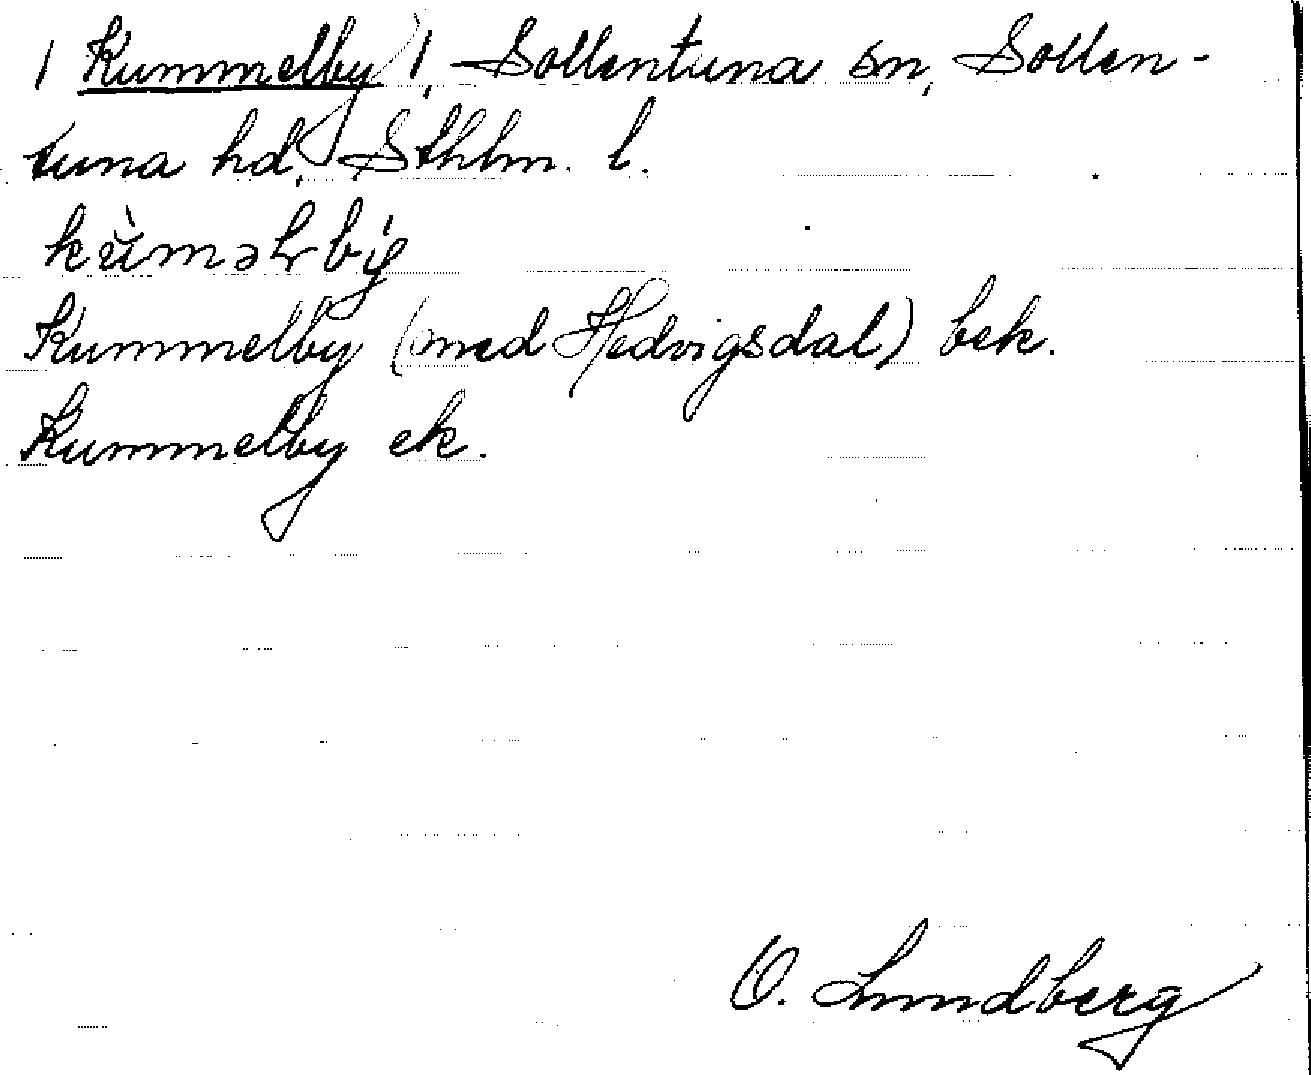 / Kummelby /, Sollentuna sn, Sollen-
tuna hd, Sthlm. l.
Kummelby (med Hedvigsdal) bek.
Kummelby ek.
O. Lundberg